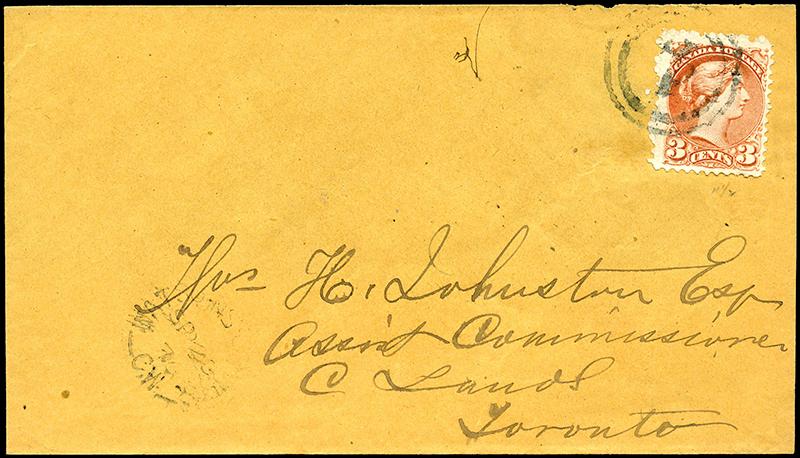 CANADA POSTAGE
3 CENTS 3
11½
Thos H. Johnston Esq
Assist Commissioner
C Lands
Toronto
C.W.